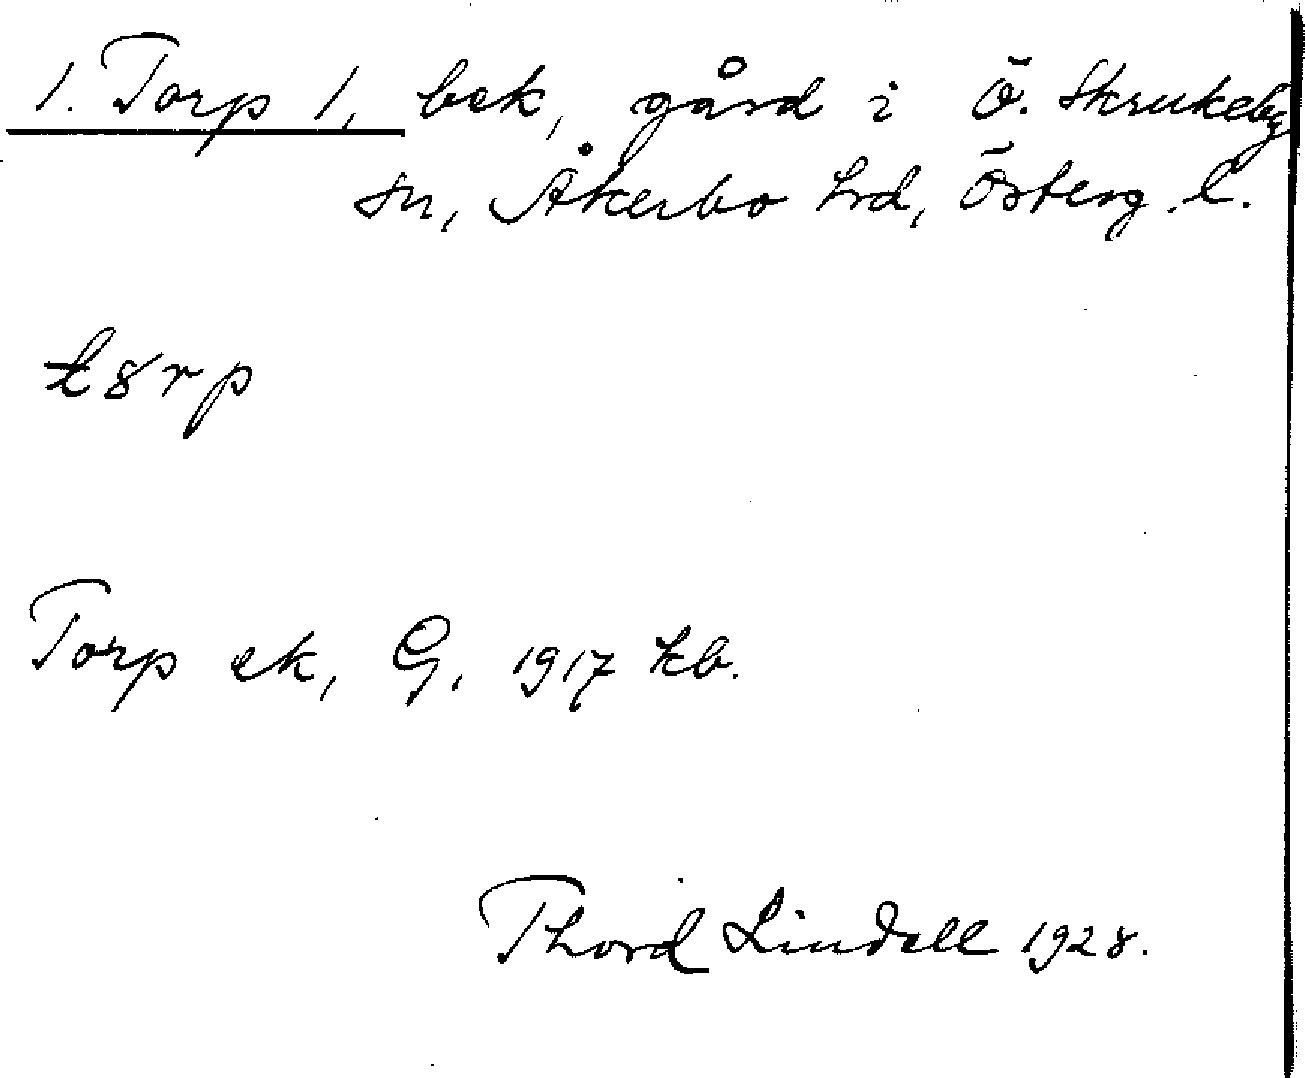 1. Torp 1, bek, gård i Ö. Skrukeby
sn, Åkerbo hd, Österg. l.
t8rp
Torp ek, G, 1917 kb.
Thord Lindell 1928.